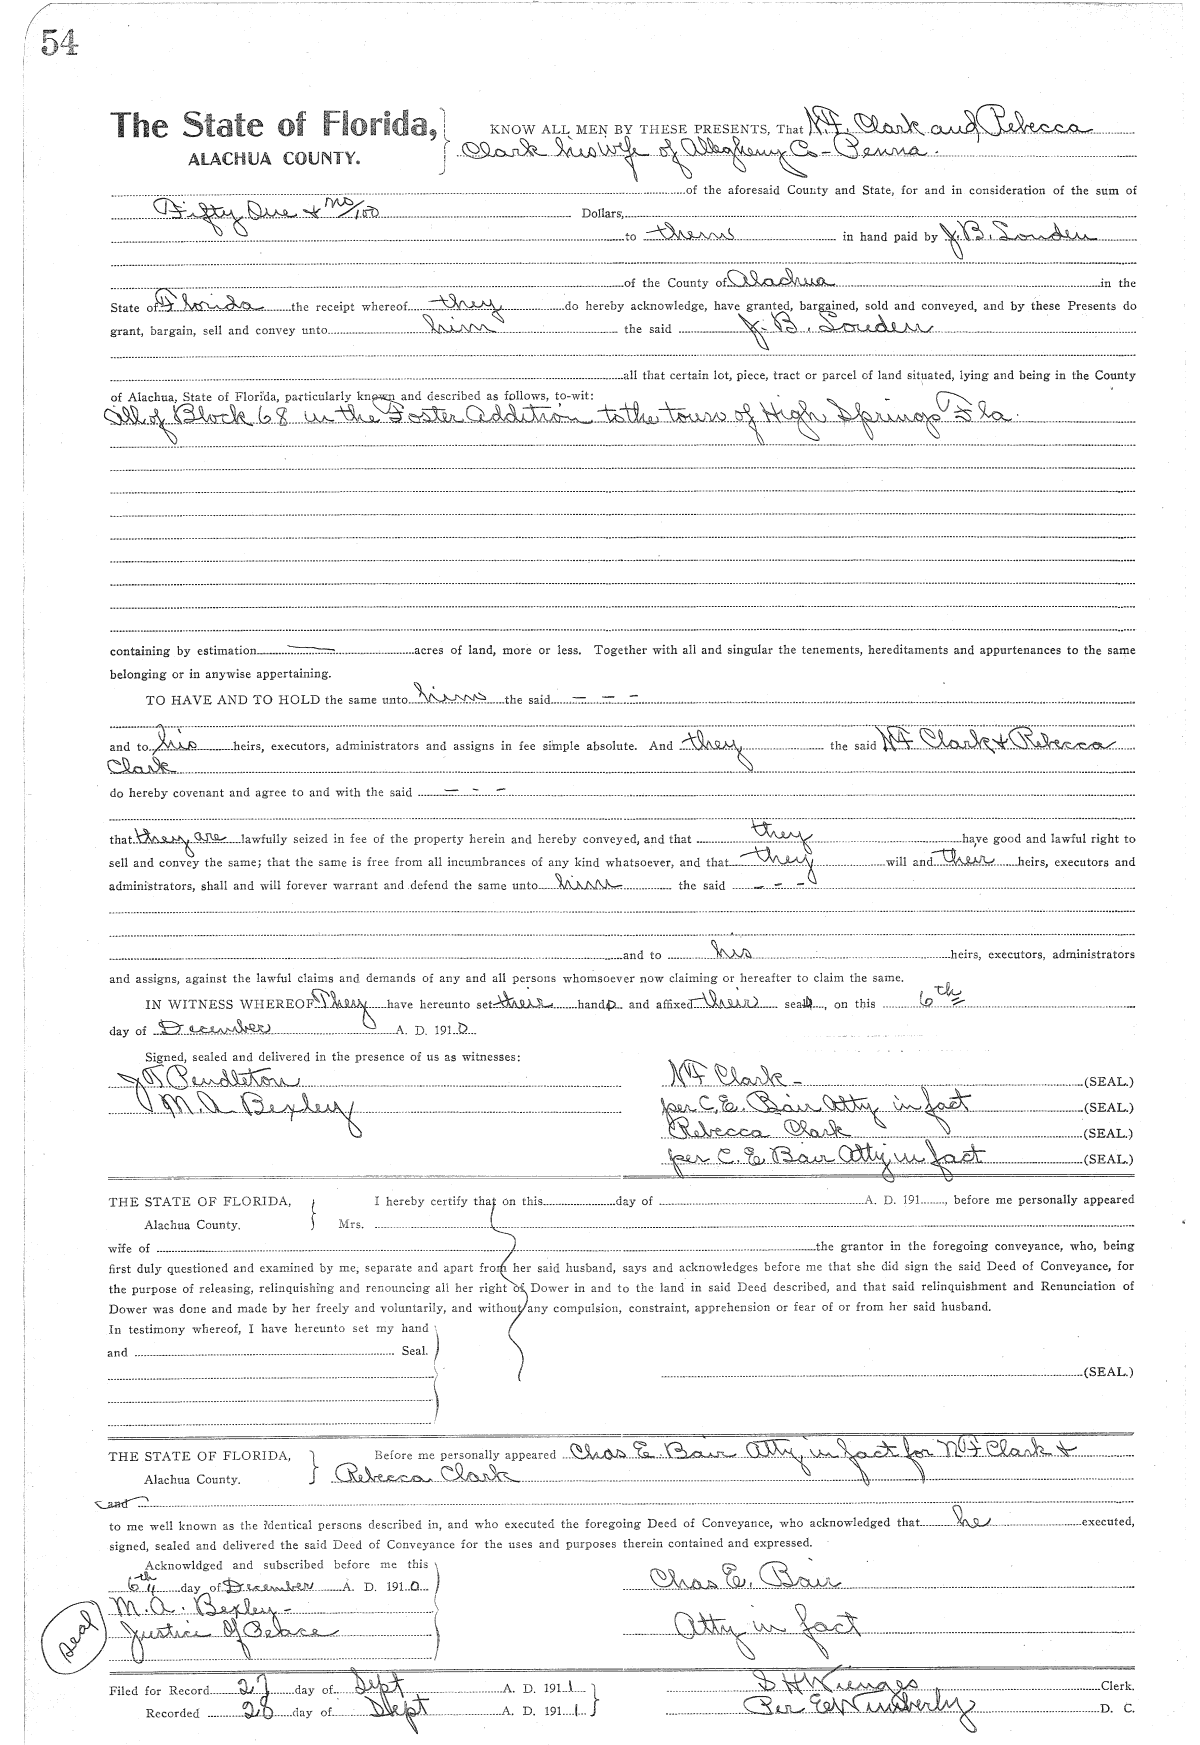 54
The State of Florida, KNOW ALL MEN BY THESE PRESENTS, That N.F. Clark and Rebecca
ALACHUA COUNTY. Clark his wife of Allegheny Co - Penna.
of the aforesaid County and State, for and in consideration of the sum of
Fifty One + no/100 Dollars,
to them in hand paid by J. B. Souden
of the County of Alachua in the
State of Florida the receipt whereof they do hereby acknowledge, have granted, bargained, sold and conveyed, and by these Presents do
grant, bargain, sell and convey unto him the said J. B. Souden
all that certain lot, piece, tract or parcel of land situated, lying and being in the County
of Alachua, State of Florida, particularly known and described as follows, to-wit:
All of Block 68 in the Foster Addition to the town of High Springs Fla.
containing by estimation — acres of land, more or less. Together with all and singular the tenements, hereditaments and appurtenances to the same
belonging or in anywise appertaining.
TO HAVE AND TO HOLD the same unto him the said - - -
and to his heirs, executors, administrators and assigns in fee simple absolute. And they the said NF Clark + Rebecca
Clark
do hereby covenant and agree to and with the said - - -
that they are lawfully seized in fee of the property herein and hereby conveyed, and that they have good and lawful right to
sell and convey the same; that the same is free from all incumbrances of any kind whatsoever, and that they will and their heirs, executors and
administrators, shall and will forever warrant and defend the same unto him the said - - -
and to his heirs, executors, administrators
and assigns, against the lawful claims and demands of any and all persons whomsoever now claiming or hereafter to claim the same.
IN WITNESS WHEREOF They have hereunto set their hands and affixed their seals, on this 6th
day of December A. D. 1910
Signed, sealed and delivered in the presence of us as witnesses:
J T Pendleton NF Clark - (SEAL.)
M. A Bexley per C. E. Bair Atty in fact (SEAL.)
Rebecca Clark (SEAL.)
per C. E. Bair Atty in fact (SEAL.)
THE STATE OF FLORIDA, I hereby certify that on this day of A. D. 191 , before me personally appeared
Alachua County. Mrs.
wife of the grantor in the foregoing conveyance, who, being
first duly questioned and examined by me, separate and apart from her said husband, says and acknowledges before me that she did sign the said Deed of Conveyance, for
the purpose of releasing, relinquishing and renouncing all her right of Dower in and to the land in said Deed described, and that said relinquishment and Renunciation of
Dower was done and made by her freely and voluntarily, and without any compulsion, constraint, apprehension or fear of or from her said husband.
In testimony whereof, I have hereunto set my hand
and Seal.
(SEAL.)
THE STATE OF FLORIDA, Before me personally appeared Chas E. Bair Atty in fact for NF Clark +
Alachua County. Rebecca Clark
and
to me well known as the identical persons described in, and who executed the foregoing Deed of Conveyance, who acknowledged that he executed,
signed, sealed and delivered the said Deed of Conveyance for the uses and purposes therein contained and expressed.
Acknowldged and subscribed before me this
6th day of December A. D. 1910 Chas E. Bair
M. A. Bexley -
Justice Of Peace Atty in fact
Seal
Filed for Record 27 day of Sept A. D. 1911 S H Wienges Clerk.
Recorded 28 day of Sept A. D. 1911 Per E Wimberly D. C.